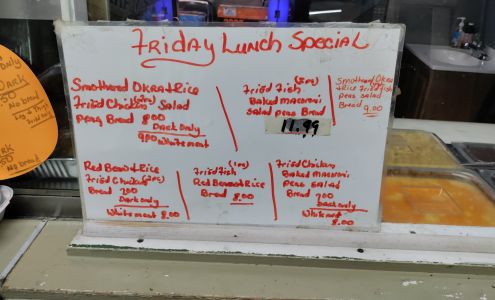 Friday Lunch Special
Smothered OKRA + Rice
Fried Chicken (2pc) Salad
Peas Bread 8.00
Dark Only
9.00 White meat
Fried Fish (2pc)
Baked macaroni
Salad peas Bread
11.99
Smothered Okra
+ Rice Fried Fish
peas salad
Bread 9.00
Red Beans + Rice
Fried Chicken (2pc)
Bread 7.00
Dark only
White meat 8.00
(1pc)
Fried Fish
Red Beans + Rice
Bread 8.00
Fried Chicken
Baked Macaroni
Peas Salad
Bread 7.00
Dark only
White meat
8.00
Only
Dark
50
No bread
Leg + Thigh
Fried only
50
No Bread